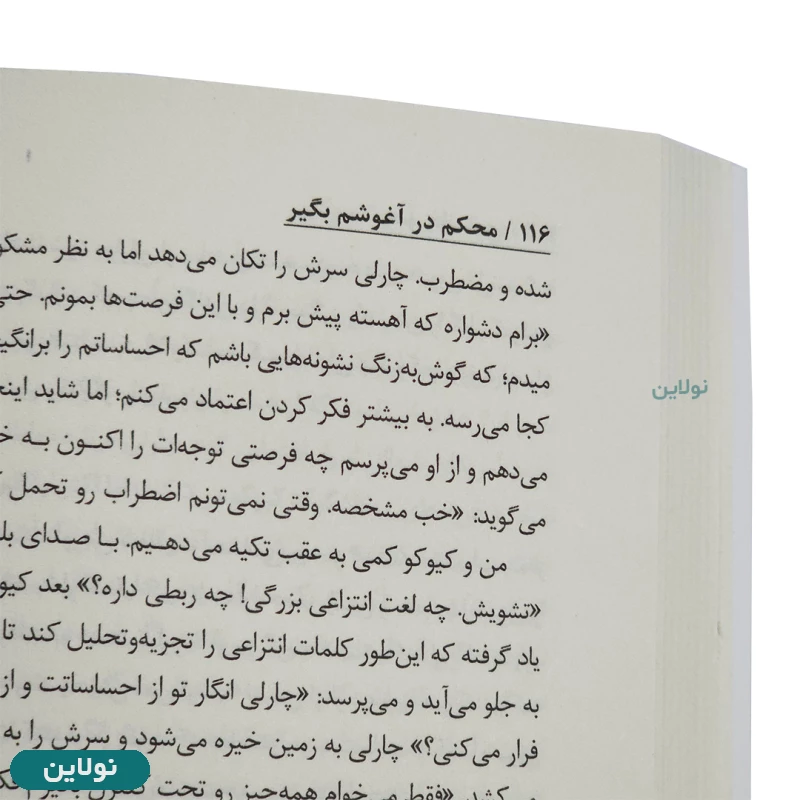 ۱۱۶ / محکم در آغوشم بگیر
شده و مضطرب. چارلی سرش را تکان می‌دهد اما به نظر
«برام دشواره که آهسته پیش برم و با این فرصت‌ها بمونم. حتی
میدم؛ که گوش‌به‌زنگ نشونه‌هایی باشم که احساساتم را
کجا می‌رسه. به بیشتر فکر کردن اعتماد می‌کنم؛ اما شاید
می‌دهم و از او می‌پرسم چه فرصتی توجه‌ات را اکنون به
می‌گوید: «خب مشخصه. وقتی نمی‌تونم اضطراب رو تحمل
من و کیوکو کمی به عقب تکیه می‌دهیم. با صدای
«تشویش. چه لغت انتزاعی بزرگی! چه ربطی داره؟» بعد
یاد گرفته که این‌طور کلمات انتزاعی را تجزیه‌وتحلیل کند تا
به جلو می‌آید و می‌پرسد: «چارلی انگار تو از احساساتت و از
فرار می‌کنی؟» چارلی به زمین خیره می‌شود و سرش را به
«فقط می‌خوام همه‌چیز رو تحت
نولاین
نولاین